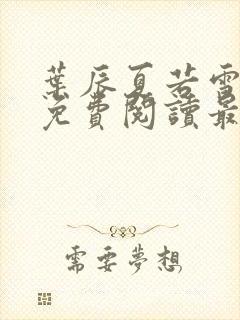 葉辰夏若雪
免費閱讀最
需要夢想